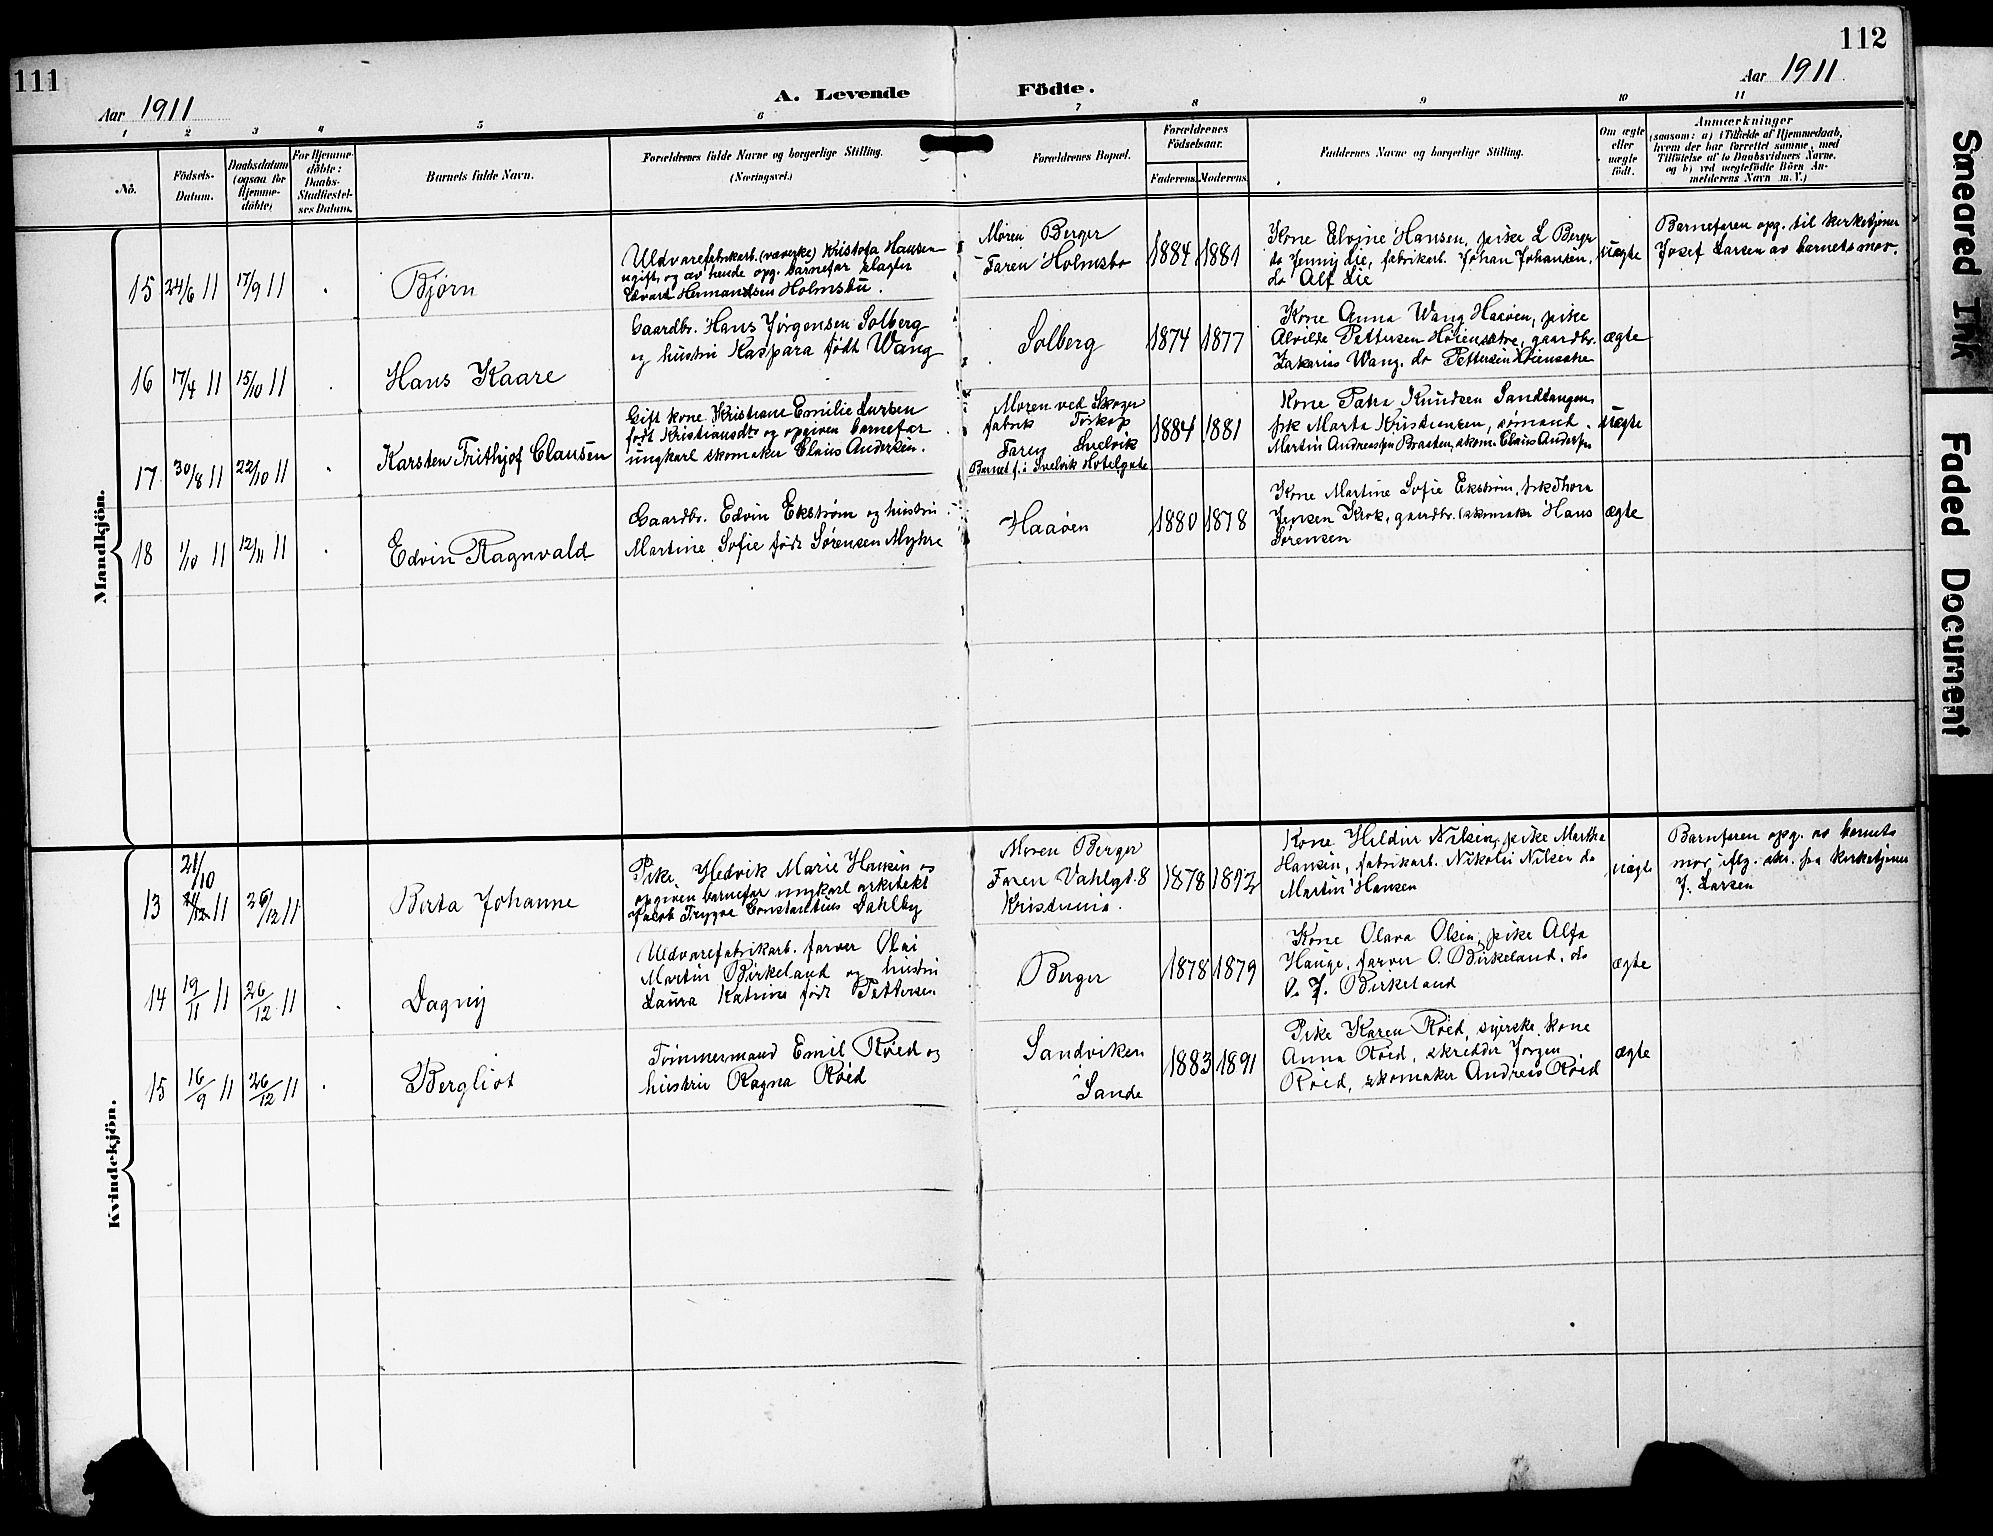 111
112
Aar 1911
A. Levende Födte.
Aar 1911
1 2 3 4 5 6 7 8 9 10 11
No.
Födsels-
Datum.
Daabsdatum
(ogsaa for
Hjemme-
döbte)
For Hjemme-
döbte:
Daabs-
Stadfæstel-
ses Datum.
Barnets fulde Navn.
Forældrenes fulde Navne og borgerlige Stilling.
(Næringsvei.)
Forældrenes Bopæl.
Forældrenes
Födselsaar.
Faderens. Moderens.
Faddernes Navne og borgerlige Stilling.
Om ægte
eller
uægte
født.
Anmærkninger
(saasom: a) i Tilfælde af Hjemmedaab,
hvem der har forrettet samme, med
Tilföielse af to Daabsvidners Navne,
og b) ved uægtefödte Börn An-
melderens Navn m. V.)
Mandkjön.
15 24/6 11 17/9 11
Bjørn
Uldvarefabrikarb. (væverske) Kristofa Hansen
ugift, og av hende opg. barnefar slagter
Edvart Hermandsen Holmsbu.
Moren Berger
Faren Holmsbo
1884 1881
Kone Elvine Hansen, pike L Berger
do Jenny Lie, fabrikarb. Johan Johansen,
do Alf Lie
uægte
Barnefaren opg. til kirketjener
Josef Larsen av barnets mor.
16 17/4 11 15/10 11
Hans Kaare
Gaardbr. Hans Jørgensen Solberg
og hustru Kaspara født Wang
Solberg
1874 1877
Kone Anna Wang Haaøen, pike
Alvilde Pettersen , gaardbr.
Zakarias Wang, do Pettersen
ægte
17 30/8 11 22/10 11
Karsten Frithjof Clausen
Gift kone Kristiane Emilie Larsen
født Kristiansdtr og opgiven barnefar
ungkarl skomaker Claus Andersen.
Moren ved Skoger
fabrik
Faren Svelvik
Barnet f. i Svelvik Hotelgate
1884 1881
Kone Petra Knudsen Sandtangen,
frk Marta Kristiansen, sømand
Martin Andreassen Braaten, skom. Claus Andersen
uægte
18 1/10 11 12/11 11
Edvin Ragnvald
Gaardbr. Edvin Ekstrøm og hustru
Martine Sofie født Sørensen Myhre
Haaøen
1880 1878
Kone Martine Sofie Ekstrøm, frk Thora
Jensen Krok, gaardbr. skomaker Hans
Sørensen
ægte
Kvindekjön.
21/10
13 11 26/12 11
Berta Johanne
Pike Hedvik Marie Hansen og
opgiven barnefar ungkarl arkitekt
Jacob Trygve Constantius Dahlby
Moren Berger
Faren Vahlgt. 8
Kristiania.
1878 1892
Kone Hildur Nilsen, pike Martha
Hansen, fabrikarb. Nikolai Nilsen do
Martin Hansen
uægte
Barnfaren opg. av barnets
mor iflg. skr. fra kirketjener
J. Larsen
14 19/11 11 26/12 11
Dagny
Uldvarefabrikarb. farver Olai
Martin Birkeland og hustru
Laura Katrine født Pettersen
Berger
1878 1879
Kone Olava Olsen, pike Alfa
Hauge, farver O. Birkeland, do
J. Birkeland
ægte
15 16/9 11 26/12 11
Bergliot
Tømmermand Emil Røed og
hustru Ragna Røed
Sandviken
i
Sande
1883 1891
Pike Karen Røed, syerske, kone
Anna Røed, skrædder Jørgen
Røed, skomaker Andreas Røed
ægte
Smeared Ink
Faded Document